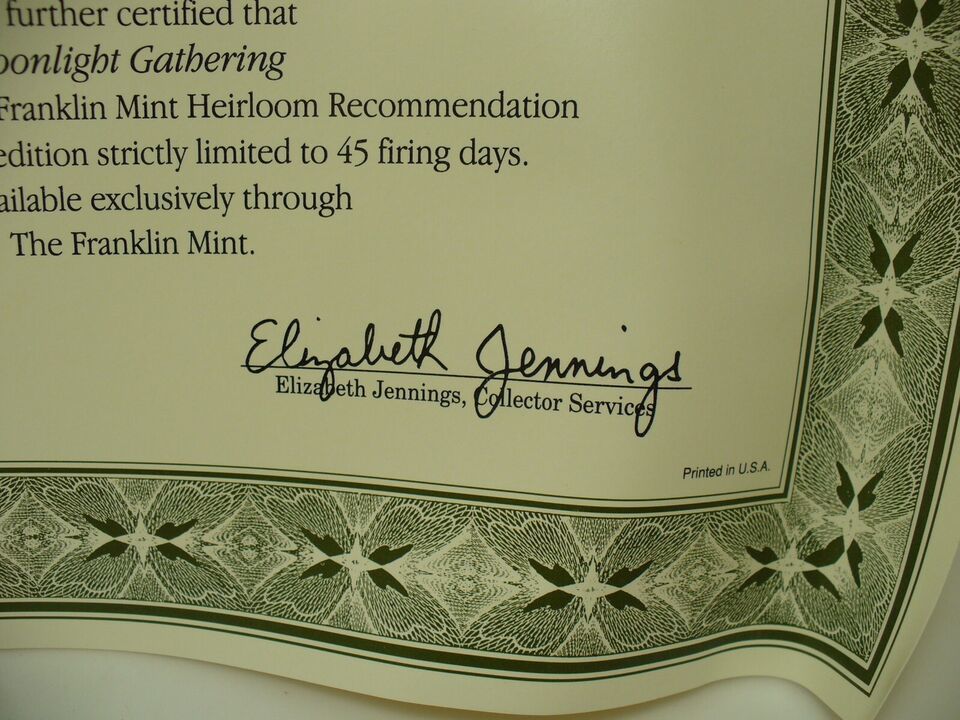 further certified that
oonlight Gathering
Franklin Mint Heirloom Recommendation
edition strictly limited to 45 firing days.
ailable exclusively through
The Franklin Mint.
Elizabeth Jennings
Elizabeth Jennings, Collector Services
Printed in U.S.A.